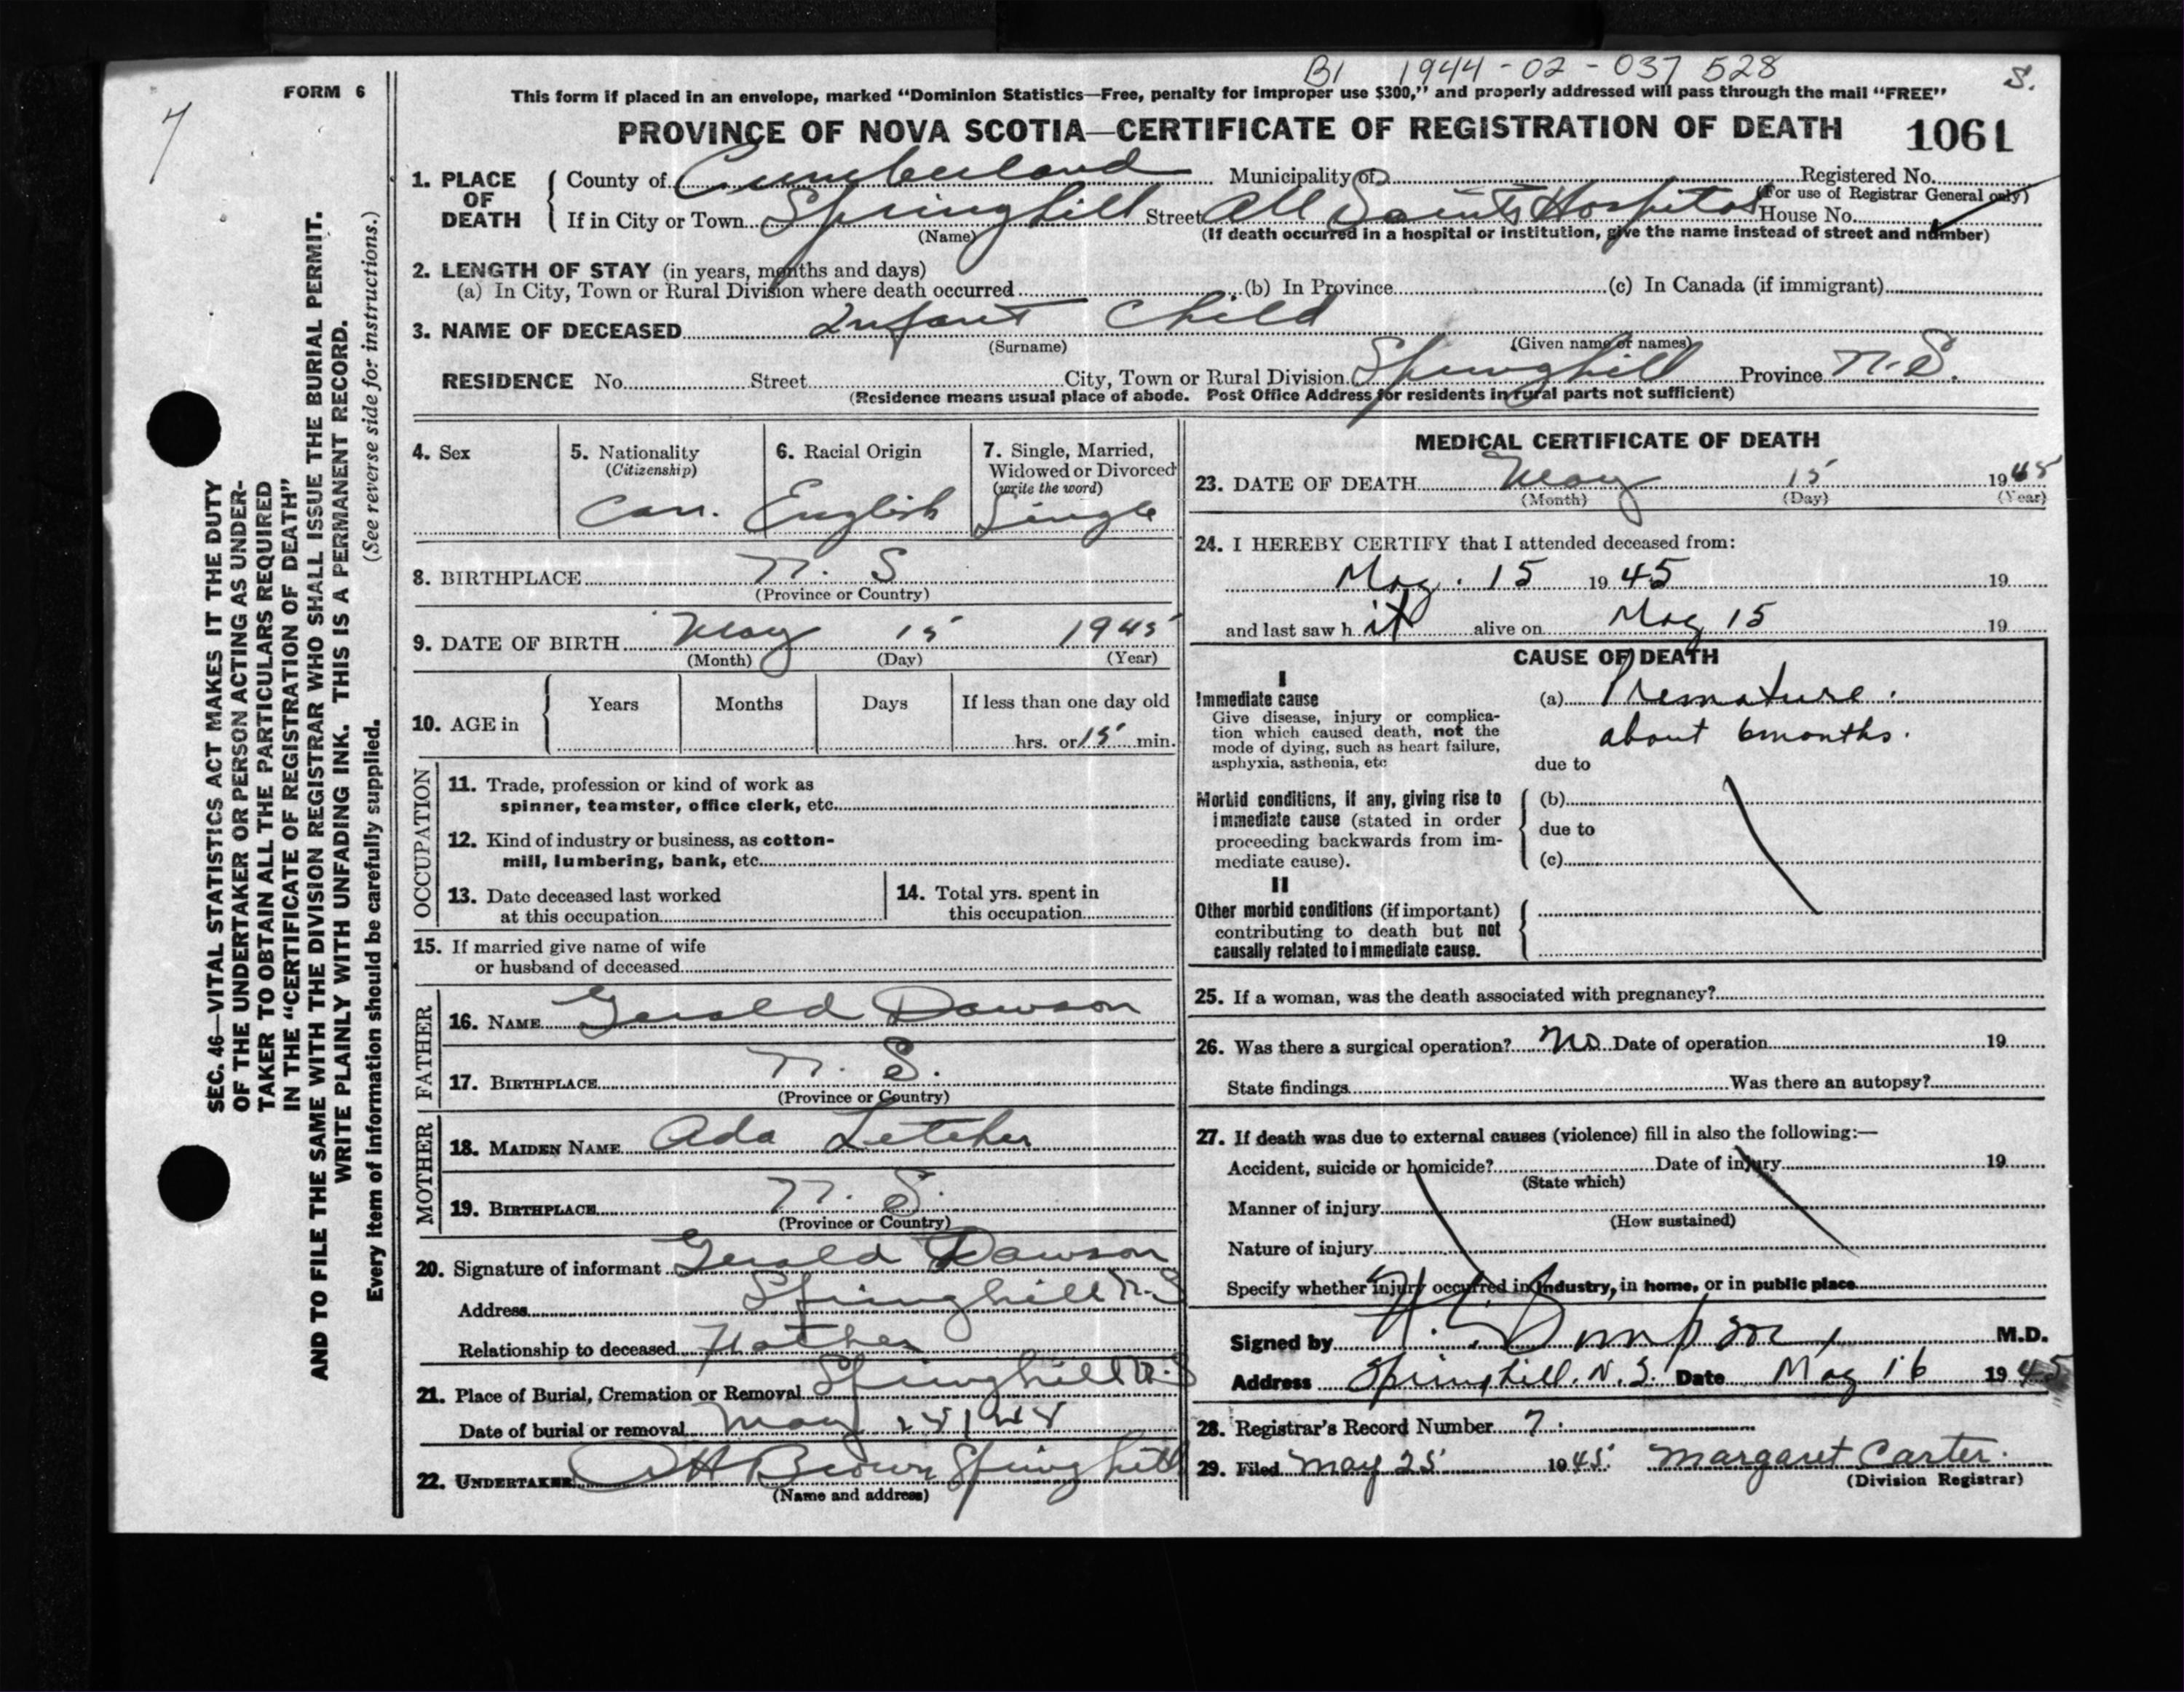 B1 1944-02-037528
S.
FORM 6
7
This form if placed in an envelope, marked "Dominion Statistics—Free, penalty for improper use $300," and properly addressed will pass through the mail "FREE"
PROVINCE OF NOVA SCOTIA—CERTIFICATE OF REGISTRATION OF DEATH 1061
1. PLACE OF DEATH
County of Cumberland Municipality of Registered No.
(For use of Registrar General only)
If in City or Town Springhill Street All Saints Hospital House No.
(Name) (If death occurred in a hospital or institution, give the name instead of street and number)
2. LENGTH OF STAY (in years, months and days)
(a) In City, Town or Rural Division where death occurred (b) In Province (c) In Canada (if immigrant)
3. NAME OF DECEASED Infant Child
(Surname) (Given name or names)
RESIDENCE No. Street City, Town or Rural Division Springhill Province N.S.
(Residence means usual place of abode. Post Office Address for residents in rural parts not sufficient)
4. Sex
5. Nationality
(Citizenship)
Can.
6. Racial Origin
English
7. Single, Married,
Widowed or Divorced
(write the word)
Single
8. BIRTHPLACE N. S
(Province or Country)
9. DATE OF BIRTH May 15 1945
(Month) (Day) (Year)
10. AGE in
Years Months Days If less than one day old
hrs. or 15 min.
OCCUPATION
11. Trade, profession or kind of work as
spinner, teamster, office clerk, etc.
12. Kind of industry or business, as cotton-
mill, lumbering, bank, etc.
13. Date deceased last worked
at this occupation
14. Total yrs. spent in
this occupation
15. If married give name of wife
or husband of deceased
FATHER
16. NAME Gerald Dawson
17. BIRTHPLACE N. S.
(Province or Country)
MOTHER
18. MAIDEN NAME Ada Letcher
19. BIRTHPLACE N. S.
(Province or Country)
20. Signature of informant Gerald Dawson
Address Springhill N.S
Relationship to deceased Father
21. Place of Burial, Cremation or Removal Springhill N.S
Date of burial or removal May
22. UNDERTAKER Brown Springhill
(Name and address)
MEDICAL CERTIFICATE OF DEATH
23. DATE OF DEATH May 15 1945
(Month) (Day) (Year)
24. I HEREBY CERTIFY that I attended deceased from:
May. 15 1945 19
and last saw h it alive on May 15 19
CAUSE OF DEATH
I
Immediate cause
Give disease, injury or complica-
tion which caused death, not the
mode of dying, such as heart failure,
asphyxia, asthenia, etc
(a) Premature.
about 6 months.
due to
Morbid conditions, if any, giving rise to
immediate cause (stated in order
proceeding backwards from im-
mediate cause).
(b)
due to
(c)
II
Other morbid conditions (if important)
contributing to death but not
causally related to immediate cause.
25. If a woman, was the death associated with pregnancy?
26. Was there a surgical operation? No Date of operation 19
State findings Was there an autopsy?
27. If death was due to external causes (violence) fill in also the following:—
Accident, suicide or homicide? Date of injury 19
(State which)
Manner of injury
(How sustained)
Nature of injury
Specify whether injury occurred in industry, in home, or in public place
Signed by M.D.
Address Springhill. N. S. Date May 16 1945
28. Registrar's Record Number 7.
29. Filed May 25 1945 Margaret Carter.
(Division Registrar)
SEC. 46—VITAL STATISTICS ACT MAKES IT THE DUTY
OF THE UNDERTAKER OR PERSON ACTING AS UNDER-
TAKER TO OBTAIN ALL THE PARTICULARS REQUIRED
IN THE "CERTIFICATE OF REGISTRATION OF DEATH"
AND TO FILE THE SAME WITH THE DIVISION REGISTRAR WHO SHALL ISSUE THE BURIAL PERMIT.
WRITE PLAINLY WITH UNFADING INK. THIS IS A PERMANENT RECORD.
Every item of information should be carefully supplied. (See reverse side for instructions.)